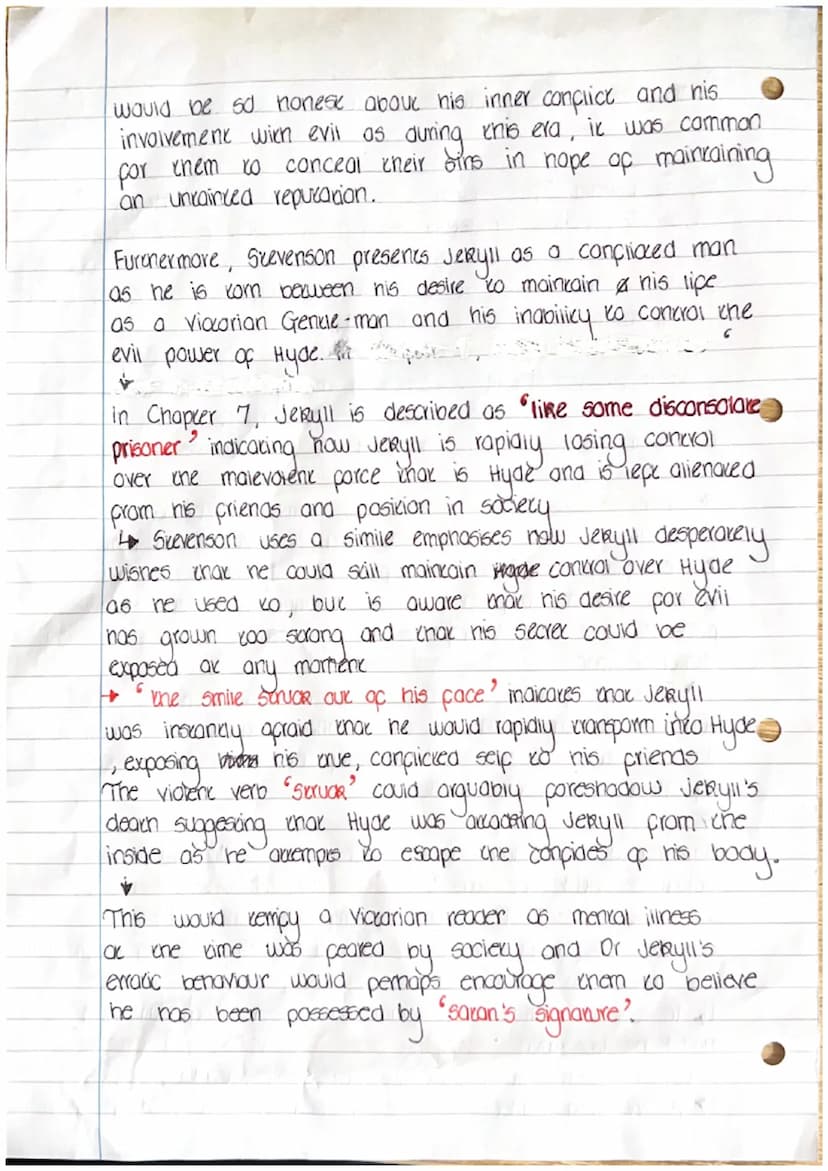 would be so honest about his inner conflict and his
involvement with evil as during this era, it was common
for them to conceal their sins in hope of maintaining
an untainted reputation.
Furthermore, Stevenson presents Jekyll as a conflicted man
as he is torn between his desire to maintain his life
as a Victorian Gentle-man and his inability to control the
evil power of Hyde.
In Chapter 7, Jekyll is described as 'like some disconsolate
prisoner' indicating how Jekyll is rapidly losing control
over the malevolent force that is Hyde and is left alienated
from his friends and position in society
↳ Stevenson uses a simile emphasises how Jekyll desperately
wishes that he could still maintain control over Hyde
as he used to, but is aware that his desire for evil
has grown too strong and that his secret could be
exposed at any moment
→ 'the smile struck out of his face' indicates that Jekyll
was instantly afraid that he would rapidly transform into Hyde
, exposing his true, conflicted self to his friends
The violent verb 'struck' could arguably foreshadow Jekyll's
death suggesting that Hyde was attacking Jekyll from the
inside as he attempts to escape the confides of his body.
This would terrify a Victorian reader as mental illness
at the time was feared by society and Dr Jekyll's
erratic behaviour would perhaps encourage them to believe
he has been possessed by 'satan's signature'.